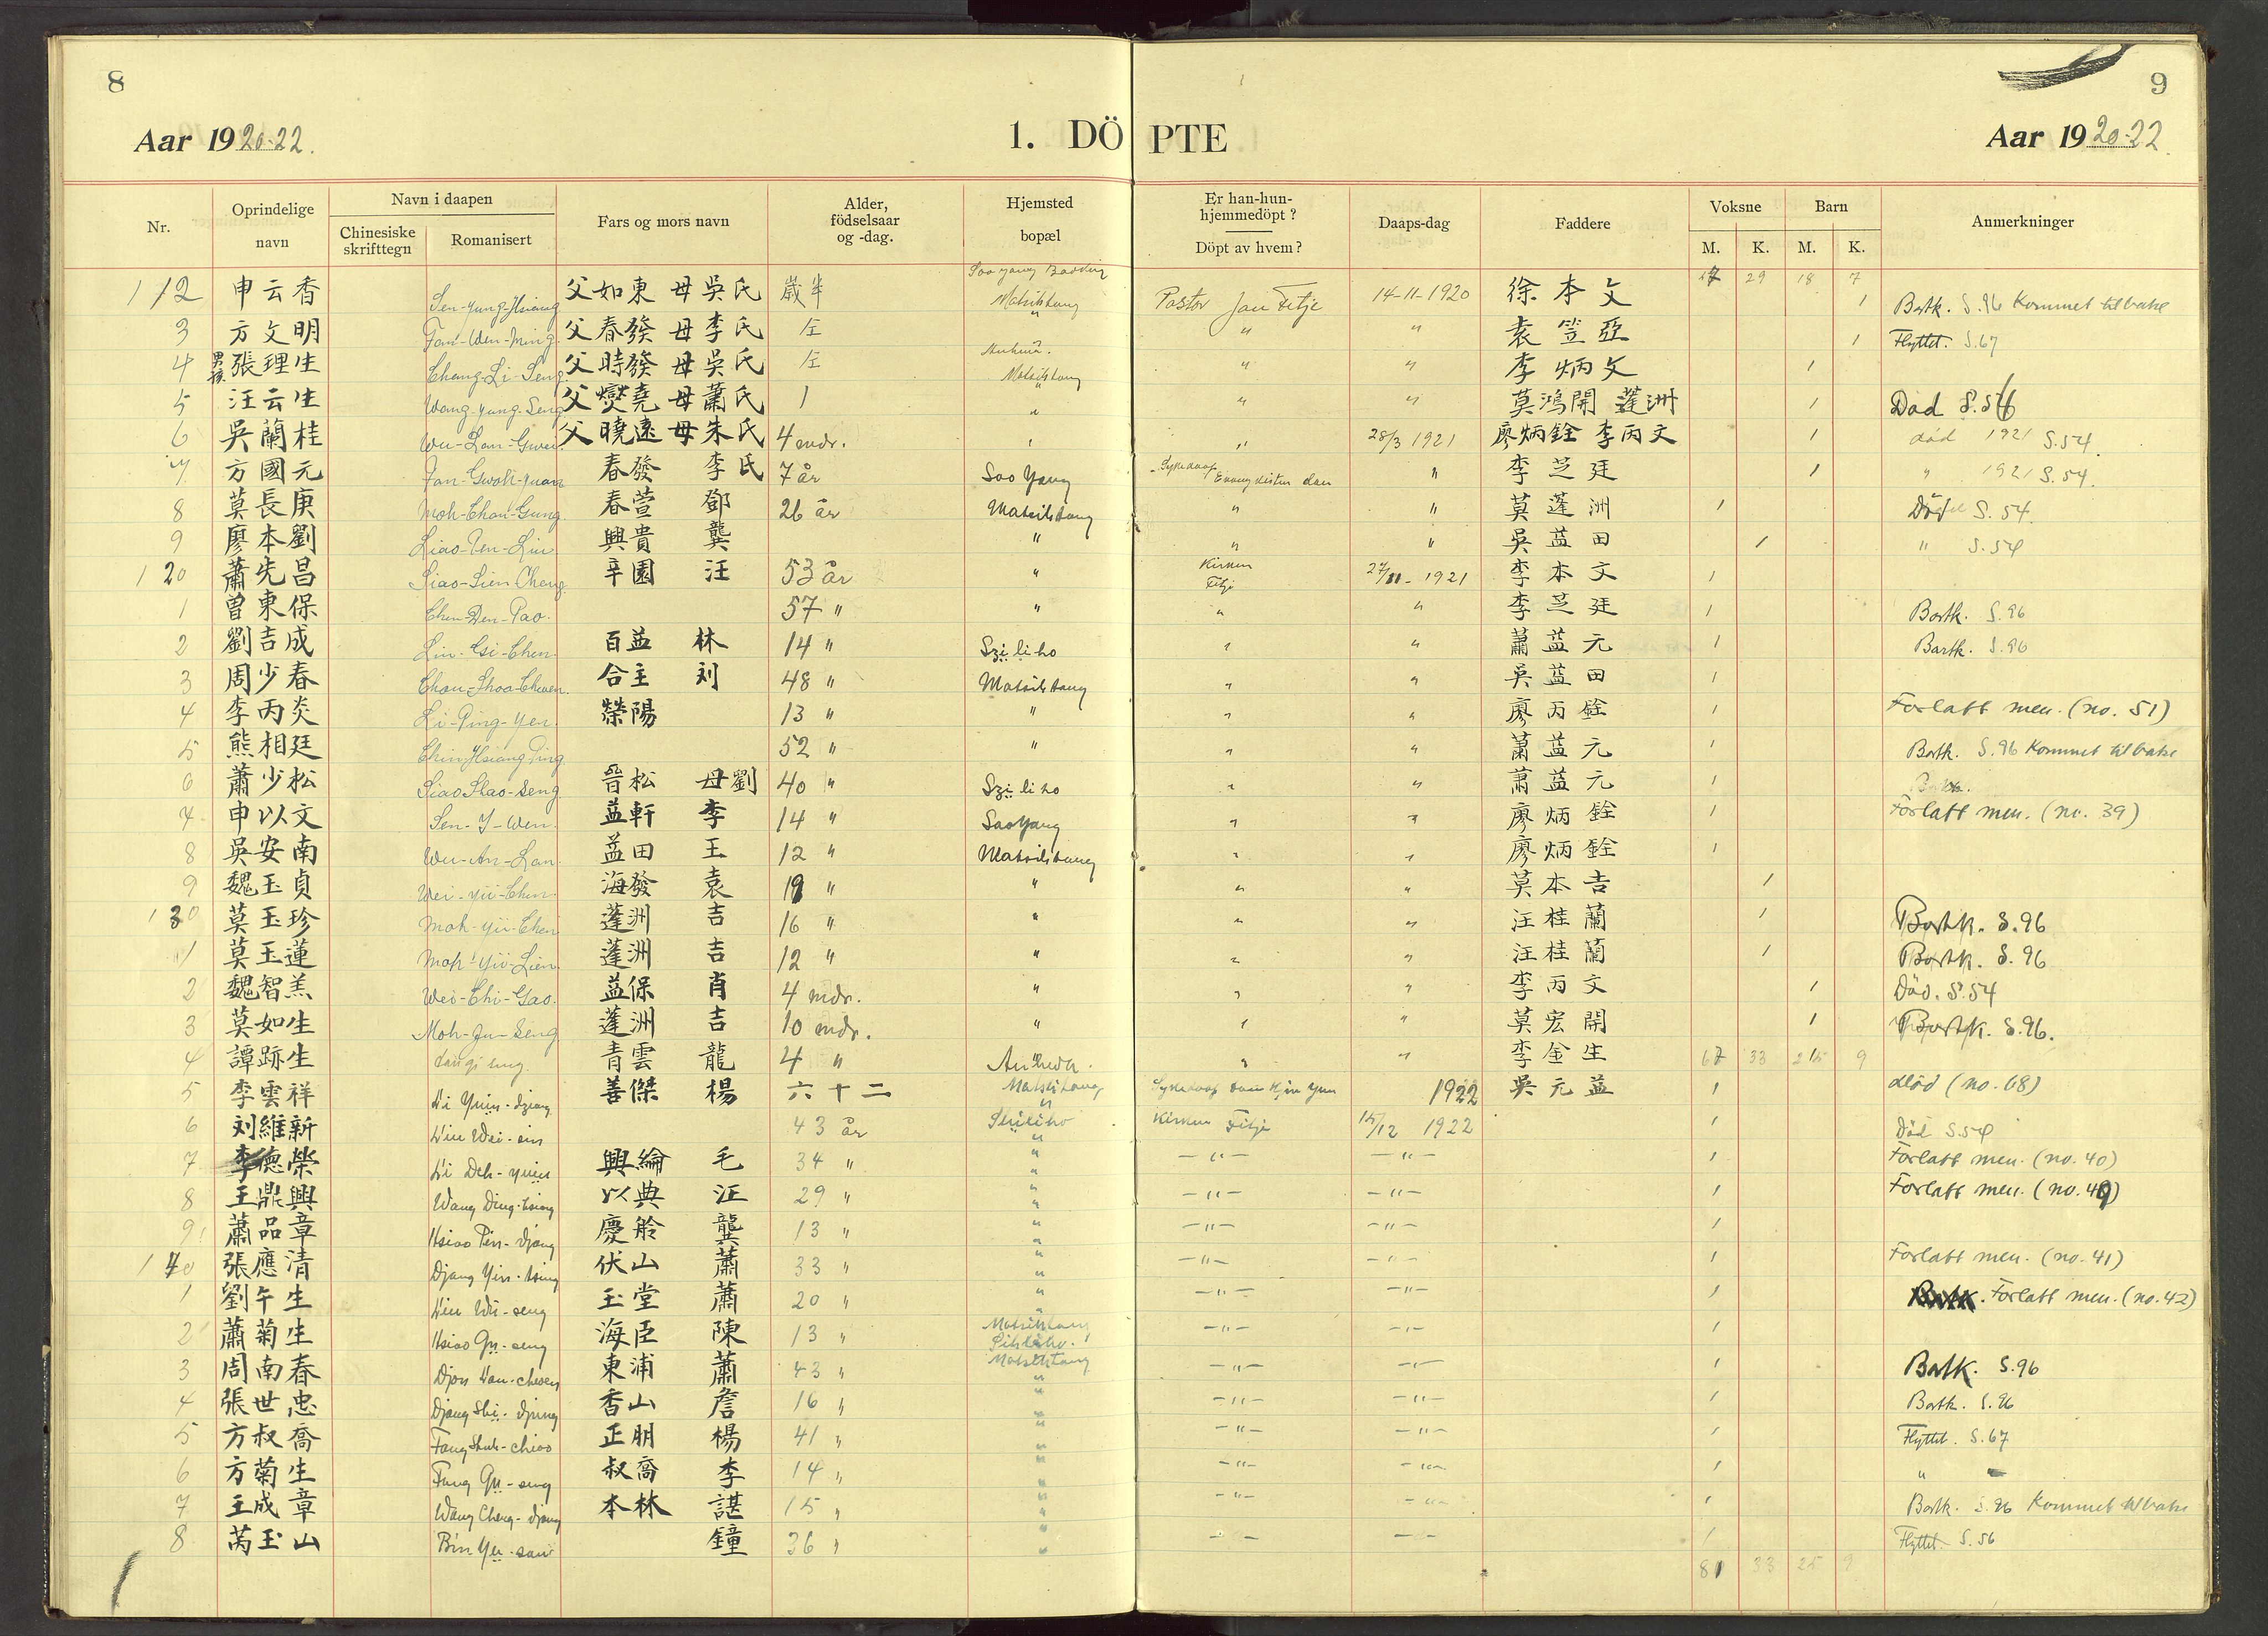 8
9
Aar 1920-22.
1. DÖPTE
Aar 1920-22.
Nr. Oprindelige navn Navn i daapen Chinesiske skrifttegn Romanisert Fars og mors navn Alder, födselsaar og -dag. Hjemsted bopæl Er han-hun-hjemmedöpt? Döpt av hvem? Daaps-dag Faddere Voksne M. K. Barn M. K. Anmerkninger
29 18 7
112 申云香 Sen-yung-Hsiang 父如東 母吳氏 歲半 Matsihtang Pastor Jan Fitje 14-11-1920 徐本文 1 Bortk. S.96 Kommet tilbake
3 方文明 Fan-Wen-Ming. 父春發 母李氏 " " 袁笠亞 1 Flyttet. S.67
4 男孩 張理生 Chang-Li-Seng. 父時發 母吳氏 Matsihtang " " 李炳文 1
5 汪云生 Wang-yung-Seng 父燮堯 母蕭氏 1 " " " 莫鴻開 蓬洲 1 Död S.56
6 吳蘭桂 Wu-Lan-Gwei 父曉遠 母朱氏 4 mdr. " " 28/3 1921 廖炳銓 李丙文 1 död 1921 S.54.
7 方國元 Fan-Gwoh-yuan 春發 李氏 7 år Sao Yang " 李芝廷 1 " 1921 S.54.
8 莫長庚 Moh-Chan-Gung. 春萱 鄧 26 år Matsihtang " " 莫蓬洲 1 S. 54.
9 廖本劉 Liao-Pen-Liu 興貴 龔 " " " 吳益田 1 " S.54
120 蕭先昌 Siao-Sien-Cheng 辛園 汪 53 år " Kirken Fitje 27/11-1921 李本文 1
1 曾東保 Chen-Den-Pao. 57 " " " " 李芝廷 1 Bortk. S.96
2 劉吉成 Liu-Gsi-Chen 百益 林 14 " Szi li ho " " 蕭益元 1 Bortk. S.96
3 周少春 Chau-Shao-Chwen. 合主 刘 48 " Matsihtang " " 吳益田 1
4 李丙炎 Li-Ping-Yen. 榮陽 13 " " " " 廖丙銓 1 Forlatt men. (no. 51)
5 熊相廷 Chin Hsiang Ting 52 " " " " 蕭益元 1 Bortk. S.96 Kommet tilbake
6 蕭少松 Siao Shao-Seng 晉松 母劉 40 " Szi li ho " " 蕭益元 1
7 申以文 Sen-Y-Wen. 益軒 李 14 " Sao Yang " " 廖炳銓 1 Forlatt men. (no. 39)
8 吳安南 Wu-An-Lan. 益田 王 12 " Matsihtang " " 廖炳銓 1
9 魏玉貞 Wei-yü-Chen 海發 袁 19 " " " " 莫本吉 1
130 莫玉珍 Moh-yü-Chen 蓬洲 吉 16 " " " " 汪桂蘭 1 Bortk. S.96
1 莫玉蓮 Moh-Yü-Lien. 蓬洲 吉 12 " " " " 汪桂蘭 1 Bortk. S.96
2 魏智羔 Wei-Chi-Gao. 益保 肖 4 mdr. " " " 李丙文 1 Död. S.54
3 莫如生 Moh-Ju-Seng 蓬洲 吉 10 mdr. " " " 莫宏開 1 Bortk. S.96.
4 譚跡生 青雲 龍 4 " " " 李金生 67 33 25 9
5 李雲祥 Li Yuin-dziang 善傑 楊 六十二 Matsihtang 1922 吳元益 1 död (no. 68)
6 刘維新 Liu Wei-sin 43 år Kirken Fitje 15/12 1922 1 Död S.54
7 李德榮 Li Deh-yuin 興綸 毛 34 " " —"— —"— 1 Forlatt men. (no. 40)
8 王鼎興 Wang Ding-hsing 以典 汪 29 " " —"— —"— 1 Forlatt men. (no. 49)
9 蕭品章 Hsiao Pin-djang 慶舲 龔 13 " " —"— —"— 1
140 張應清 Djang Yin-tsing 伏山 蕭 33 " " —"— —"— 1 Forlatt men. (no. 41)
1 劉午生 Liu Wu-seng 玉堂 蕭 20 " " —"— —"— 1 Forlatt men. (no. 42)
2 蕭菊生 Hsiao Gu-seng 海臣 陳 13 " Matsihtang —"— —"— 1
3 周南春 Djou Nan-chwen 東浦 蕭 43 " Matsihtang —"— —"— 1 Bortk. S.96
4 張世忠 Djang Shi-djung 香山 詹 16 " " —"— —"— 1 Bortk. S.96
5 方叔喬 Fang Shuh-chiao 正朋 楊 41 " " —"— —"— 1 Flyttet. S.67
6 方菊生 Fang Gu-seng 叔喬 李 14 " " —"— —"— 1 "
7 王成章 Wang Cheng-djang 本林 諶 15 " " —"— —"— 1 Bortk. S.96 Kommet tilbake
8 芮玉山 Bin Yu-san 鐘 36 " " —"— —"— 1 Flyttet S.56
81 33 25 9